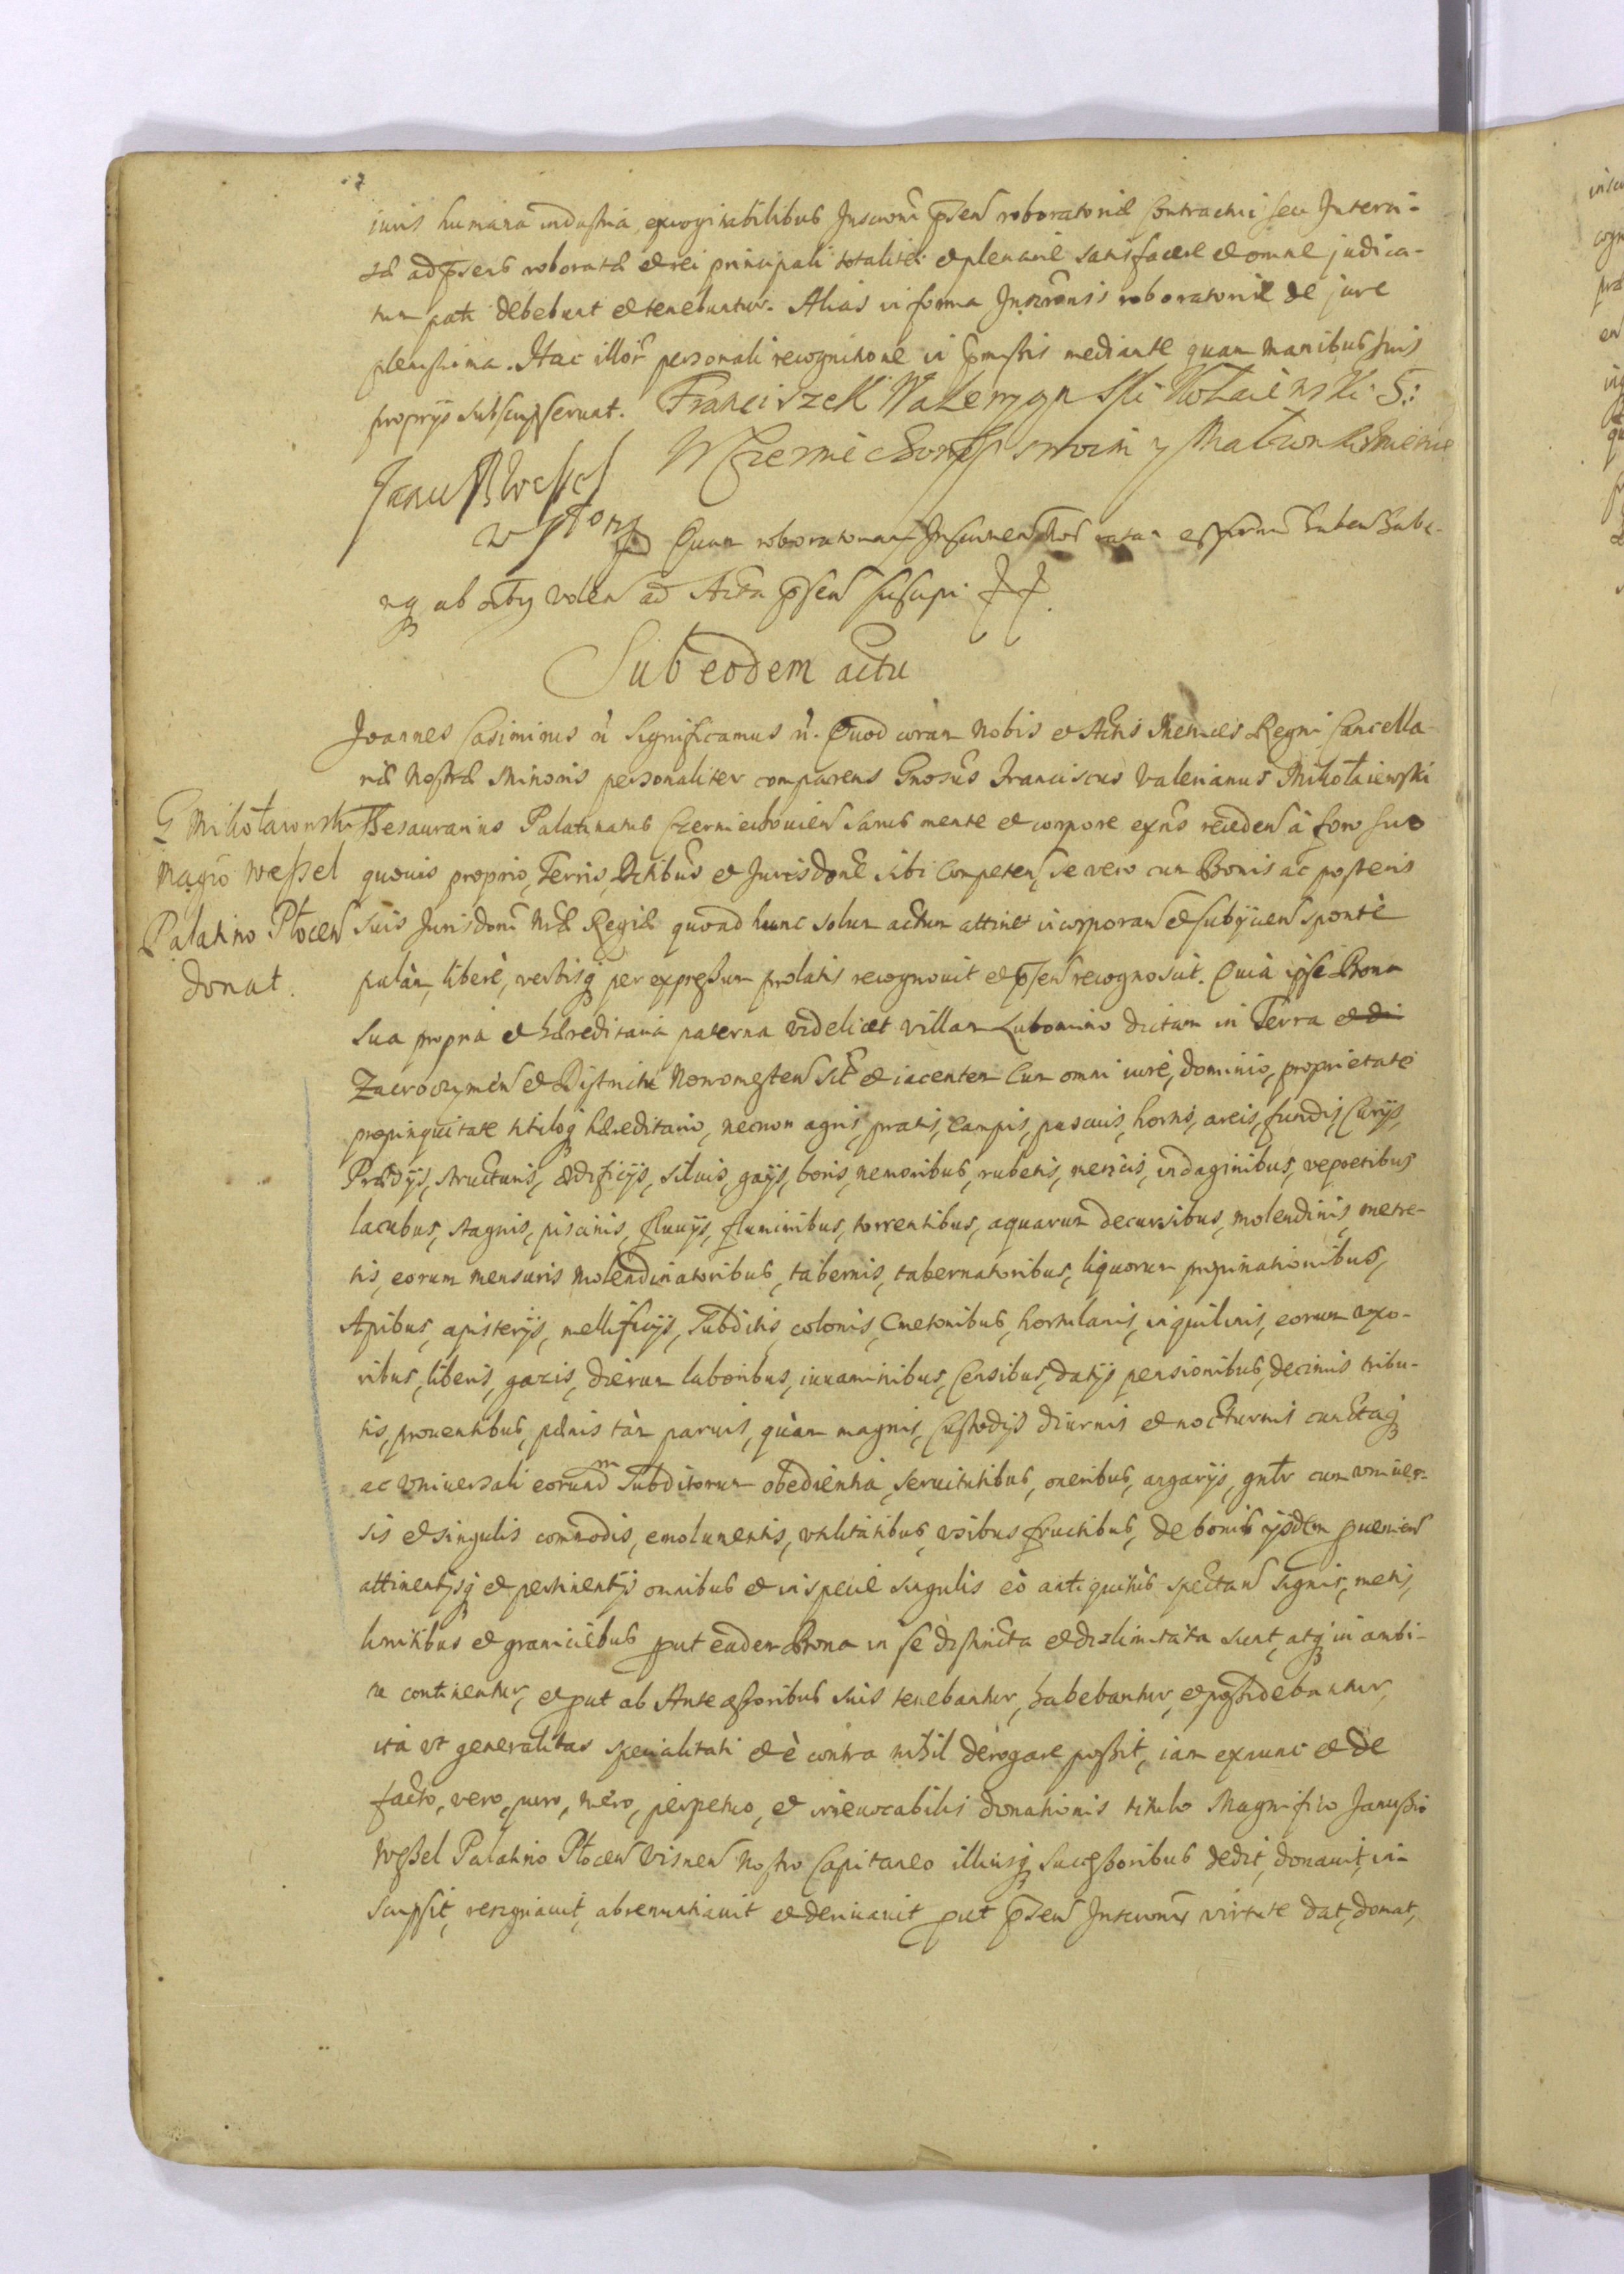 iuris humana industria excogitabilibus Inscrõni p̃sen roboratoriæ Contractui seu Interci-
sæ ad p̃sens roboratæ et rei principali totaliter et plenarie satisfacere et omne judica-
tum pati debebunt et tenebuntur. Alias in forma Inscrõnis roboratoriæ de jure
plenissima. Hac illor̃ personali recognitione in p̃missis mediante quam manibus suis
proprijs subscripserunt. Franciszek Waleryan Mikołaiewski S:
Czerniechowsk swoim y Małzonki Imieniem
Janusz Wessel
w Płocki Quam roboratoriam Inscr
nq ab ad Acta p̃sen suscepi
Sub eodem actu
Joannes Casimirus ñ Significamus ñ. Quod coram Nobis et Actis Metrices Regni Cancella-
riæ Nostræ Minoris personaliter comparens Gnosus Franciscus Valerianus Mikołaiewski
G Mikołaiowski Thesaurarius Palatinatus Czerniechouien sanus mente et corpore exñs recedens à foro suo
Magco Wessel quouis proprio, Terris, Dictibus et Jurisdone sibi competen, se vero cum Bonis ac posteris
Palatino Płocen suis Jurisdoni Nræ Regiæ quoad hunc solum actum attinet incorporan et subijcien spontè
donat. palàm, liberè, verbisq per expressum prolatis recognouit et p̃sen recognoscit. Quia ipse Bona
sua propria et hæreditaria paterna videlicet villam Lubomino dictam in Terra et di
Zacroczymen et Districtu Nowomesten sit et iacentem cum omni iure, dominio, proprietate
propinquitate tituloq hæreditario, necnon agris, pratis, campis, pascuis, hortis, areis, fundis, Curijs,
Prædijs, structuris, ædificijs, siluis, gaijs, boris, nemoribus, rubetis, mericis, indaginibus, vepretibus
lacubus, stagnis, piscinis, fluuijs, fluminibus, torrentibus, aquarum decursibus, molendinis, metre-
tis, eorum mensuris molendinatoribus, tabernis, tabernatoribus, liquorum propinationibus,
Apibus, apisterijs, mellificijs, Subditis colonis, Cmetonibus, hortulanis, inquilinis, eorum uxo-
ribus, liberis, gazis, dierum laboribus, iuuaminibus, Censibus, datijs pensionibus, decimis tribu-
tis, prouentibus, pænis tàm paruis, quàm magnis, Custodijs diurnis et nocturnis cunctaq
ac vniuersali eorumd Subditorum obedientia, seruitutibus, oneribus, angarijs, gnlr cum vniuer-
sis et singulis commodis, emolumentis, vtilitatibus, vsibus fructibus, de bonis ijsdem puenien
attinentijsq et pertinentijs omnibus et in specie singulis eò antiquitùs spectan signis, metis,
limitibus et granicièbus put eadem Bona in se distincta et dislimitata sunt, atq in ambi-
tu continentur, et put ab Antecessoribus suis tenebantur, habebantur, et possidebantur,
ità vt generalitas specialitati et è contra nihil derogare possit, iam exnunc et de
facto, vero, puro, mero, perpetuo, et irreuocabilis donationis titulo Magnifico Janussio
Wessel Palatino Płocen Visnen Nostro Capitaneo illiusq Successoribus dedit, donauit, in-
scripsit, resignauit, abrenuntiauit et deriuauit put p̃sen Inscronis virtute dat, donat,